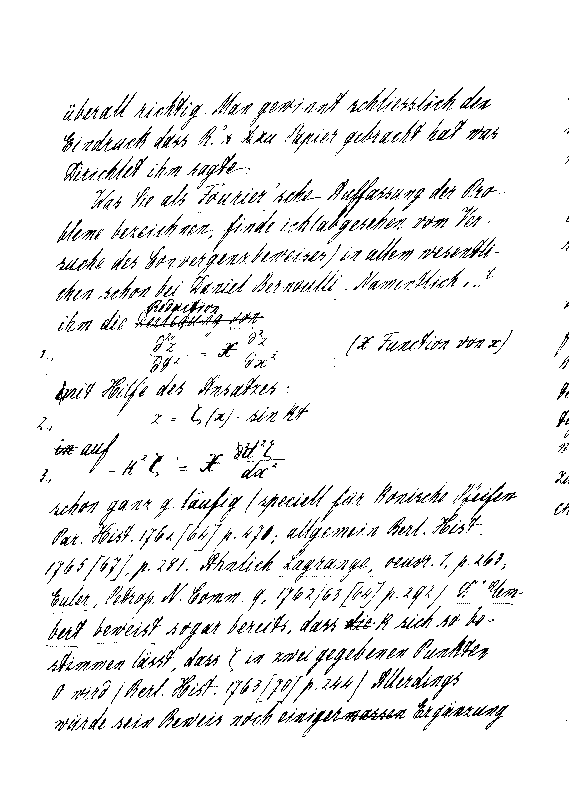 überall richtig. Man gewinnt schliesslich den
Eindruck dass R.'s zu Papier gebracht hat was
Dirichlet ihm sagte.
Was Sie als Fourier'sche Auffassung der Pro-
bleme bezeichnen, finde ich (abgesehen vom Ver-
suche des Convergenzbeweises) in allem wesentli-
chen schon bei Daniel Bernoulli. Namentlich ist
ihm die Reduction Zerlegung von
1., ∂²z/∂t² = X ∂²z/∂x² (X Function von x)
mit Hilfe des Ansatzes:
2., z = ζ(x) · sin kt
in auf
3., - k² ζ = X d²ζ/dx²
schon ganz geläufig (speciell für konische Pfeifen
Par. Hist. 1762 [64] p. 470; allgemein Berl. Hist.
1765 [67] p. 281. Ähnlich Lagrange, oeuvr. 1, p. 263,
Euler, Petrop. N. Comm. 9, 1762/63 [64] p. 292) D'Alem-
bert beweist sogar bereits, dass die k sich so be-
stimmen lässt, dass ζ in zwei gegebenen Punkten
0 wird (Berl. Hist. 1763 [70] p. 244) Allerdings
würde sein Beweis noch einigermassen Ergänzung